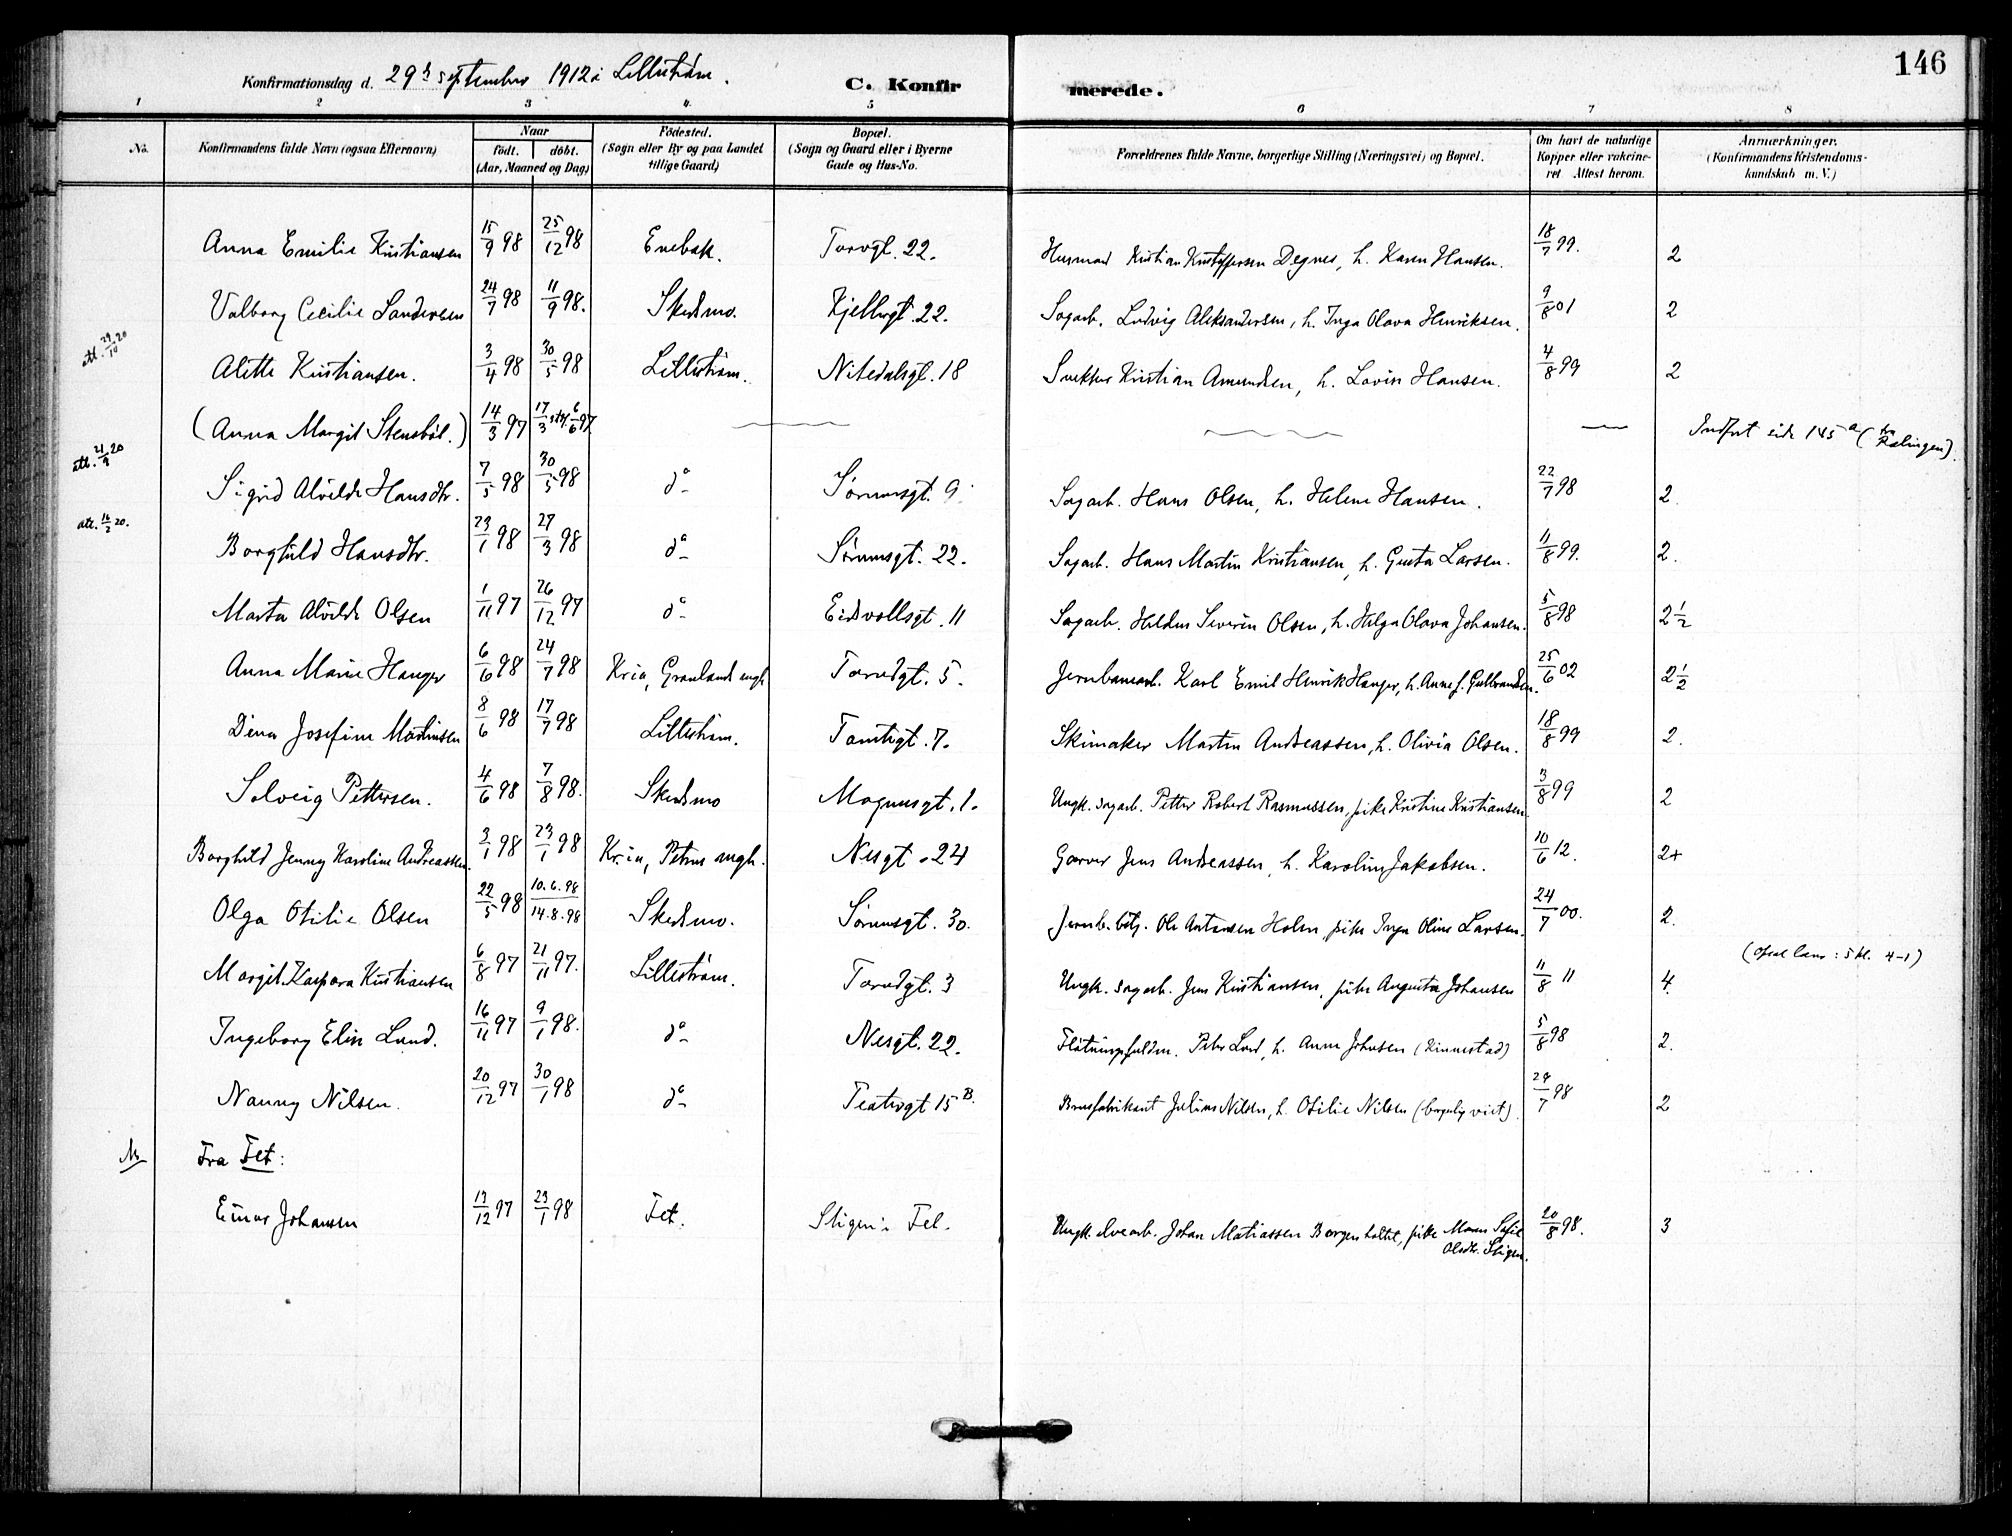 146
Konfirmationsdag d. 29de september 1912 i Lillestrøm.
C. Konfirmerede.
1 2 3 4. 5 6 7 8
No. Konfirmandens fulde Navn (ogsaa Efternavn) Naar født. døbt. (Aar, Maaned og Dag) Fødested. (Sogn eller By og paa Landet tillige Gaard) Bopæl. (Sogn og Gaard eller i Byerne Gade og Hus-No. Forældrenes fulde Navne, borgerlige Stilling (Næringsvei) og Bopæl. Om havt de naturlige Kopper eller vakcineret. Attest herom. Anmærkninger. (Konfirmandens Kristendomskundskab m. V.)
Anna Emilie Kristiansen 15/9 98 25/12 98 Enebak. Torvgt. 22. Husmand Kristian Kristoffersen Degnes, h. Karen Hansen. 18/7 99. 2
Valborg Cecilie Sandersen 24/7 98 11/9 98. Skedsmo. Kjellergt. 22. Sagarb. Ludvig Aleksandersen, h. Inga Olava Henriksen. 9/8 01 2
att. 29/10 20 Alette Kristiansen. 3/4 98 30/5 98 Lillestrøm. Nitedalsgt. 18 Snekker Kristian Amundsen, h. Lovise Hansen. 4/8 99 2
(Anna Margit Stensbøl.) 14/3 97 17/3 stf. 6/6 97 Indført side 145 a (fra Rælingen).
att. 21/9 20 Sigrid Alvilde Hansdtr. 7/5 98 30/5 98 do Sørumsgt. 9. Sagarb. Hans Olsen, h. Helene Hansen. 22/7 98 2.
att. 16/2 20. Borghild Hansdtr. 23/1 98 27/3 98 do Sørumsgt. 22. Sagarb. Hans Martin Kristiansen, h. Gusta Larsen. 11/8 99. 2.
Marta Alvilde Olsen 1/11 97 26/12 97 do Eidsvollsgt. 11 Sagarb. Haldus Severin Olsen, h. Helga Olava Johansen. 5/8 98 2 1/2
Anna Marie Hauger 6/6 98 24/7 98 Kria, Grønlands mgh. Torvdgt. 5. Jernbanearb. Karl Emil Henrik Hauger, h. Anne f. Gulbrandsen. 25/6 02 2 1/2
Dina Josefine Martinsen 8/6 98 17/7 98 Lillestrøm. Tomtegt. 7. Skimaker Martin Andreassen, h. Olivia Olsen. 18/8 99 2.
Solveig Pettersen. 4/6 98 7/8 98. Skedsmo Magnusgt. 1. Ungk. sagarb. Petter Robert Rasmussen, pike Kristine Kristiansen 3/8 99 2
Borghild Jenny Karoline Andreassen. 3/1 98 23/1 98 Kr.ia, Petrus mgh. Nesgt. 24 Garver Jens Andreassen, h. Karoline Jakobsen. 10/6 12. 2+
Olga Otilie Olsen 22/5 98 10.6.98 14.8.98 Skedsmo. Sørumsgt. 30. Jernb.betj. Ole Antonsen Holm, pike Inga Oline Larsen. 24/7 00. 2.
Margit Kaspara Kristiansen 6/8 97 21/11 97. Lillestrøm. Torvdgt. 3 Ungk. sagarb. Jens Kristiansen, pike Augusta Johansen 11/8 11 4. 5 kl. 4-1)
Ingeborg Elin Lund. 16/11 97 9/1 98. do Nesgt. 22. Fløtningsfuldm. Peter Lund, h. Anna Johnsen (Kinnestad) 5/8 98 2.
Nanny Nilsen. 20/12 97 30/1 98 do Teatergt 15 B. Brusfabrikant Julius Nilsen, h. Otilie Nilsen (borgerlig viet). 29/7 98 2
Fra Fet:
Einar Johansen 13/12 97 23/1 98 Fet. Stigen i Fet. Ungk. elvearb. Johan Matiassen Borgenholtet, pike Maren Sofie Olsdtr. Stigen. 20/8 98. 3